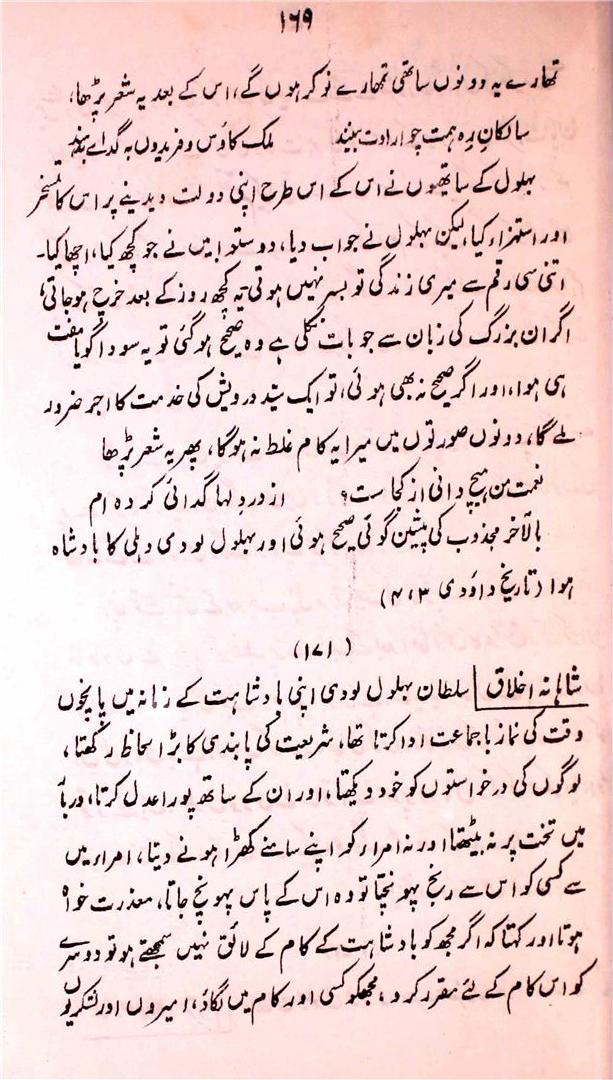 ۱۶۹
تمھارے یہ دونوں ساتھی تمھارے نوکر ہوں گے، اس کے بعد یہ شعر پڑھا،
سالکانِ رہ ہمت چو ارادت بینند ملک کاؤس و فریدوں بہ گداے بخشند
بہلول کے ساتھیوں نے اس کے اس طرح اپنی دولت دیدینے پر اس کا تمسخر
اور استہزار کیا، لیکن بہلول نے جواب دیا، دوستو! میں نے جو کچھ کیا، اچھا کیا۔
اتنی سی رقم سے میری زندگی تو بسر نہیں ہوتی یہ کچھ روز کے بعد خرچ ہو جاتی،
اگر ان بزرگ کی زبان سے جو بات نکلی ہے وہ صحیح ہو گئی تو یہ سودا گویا مفت
ہی ہوا، اور اگر صحیح نہ بھی ہوئی، تو ایک سیّد درویش کی خدمت کا اجر ضرور
ملے گا، دونوں صورتوں میں میرا یہ کام غلط نہ ہو گا، پھر یہ شعر پڑھا
نعمت من ہیچ دانی از کجا ست؟ از در دلہا گدائی کردہ ام
بالآخر مجذوب کی پیشین گوئی صحیح ہوئی اور بہلول لودی دہلی کا بادشاہ
ہوا (تاریخ داؤدی ۳، ۴)
(۱۷۱)
شاہانہ اخلاق سلطان بہلول لودی اپنی بادشاہت کے زمانہ میں پانچوں
وقت کی نماز باجماعت ادا کرتا تھا، شریعت کی پابندی کا بڑا لحاظ رکھتا،
لوگوں کی درخواستوں کو خود دیکھتا، اور ان کے ساتھ پورا عدل کرتا، دربار
میں تخت پر نہ بیٹھتا اور نہ امراء کو اپنے سامنے کھڑا ہونے دیتا، امراء میں
سے کسی کو اس سے رنج پہونچتا تو وہ اس کے پاس پہونچ جاتا، معذرت خواہ
ہوتا اور کہتا کہ اگر مجھ کو بادشاہت کے کام کے لائق نہیں سمجھتے ہو تو دوسرے
کو اس کام کے لئے مقرر کردو، مجھکو کسی اور کام میں لگاؤ، امیروں اور لشکریوں